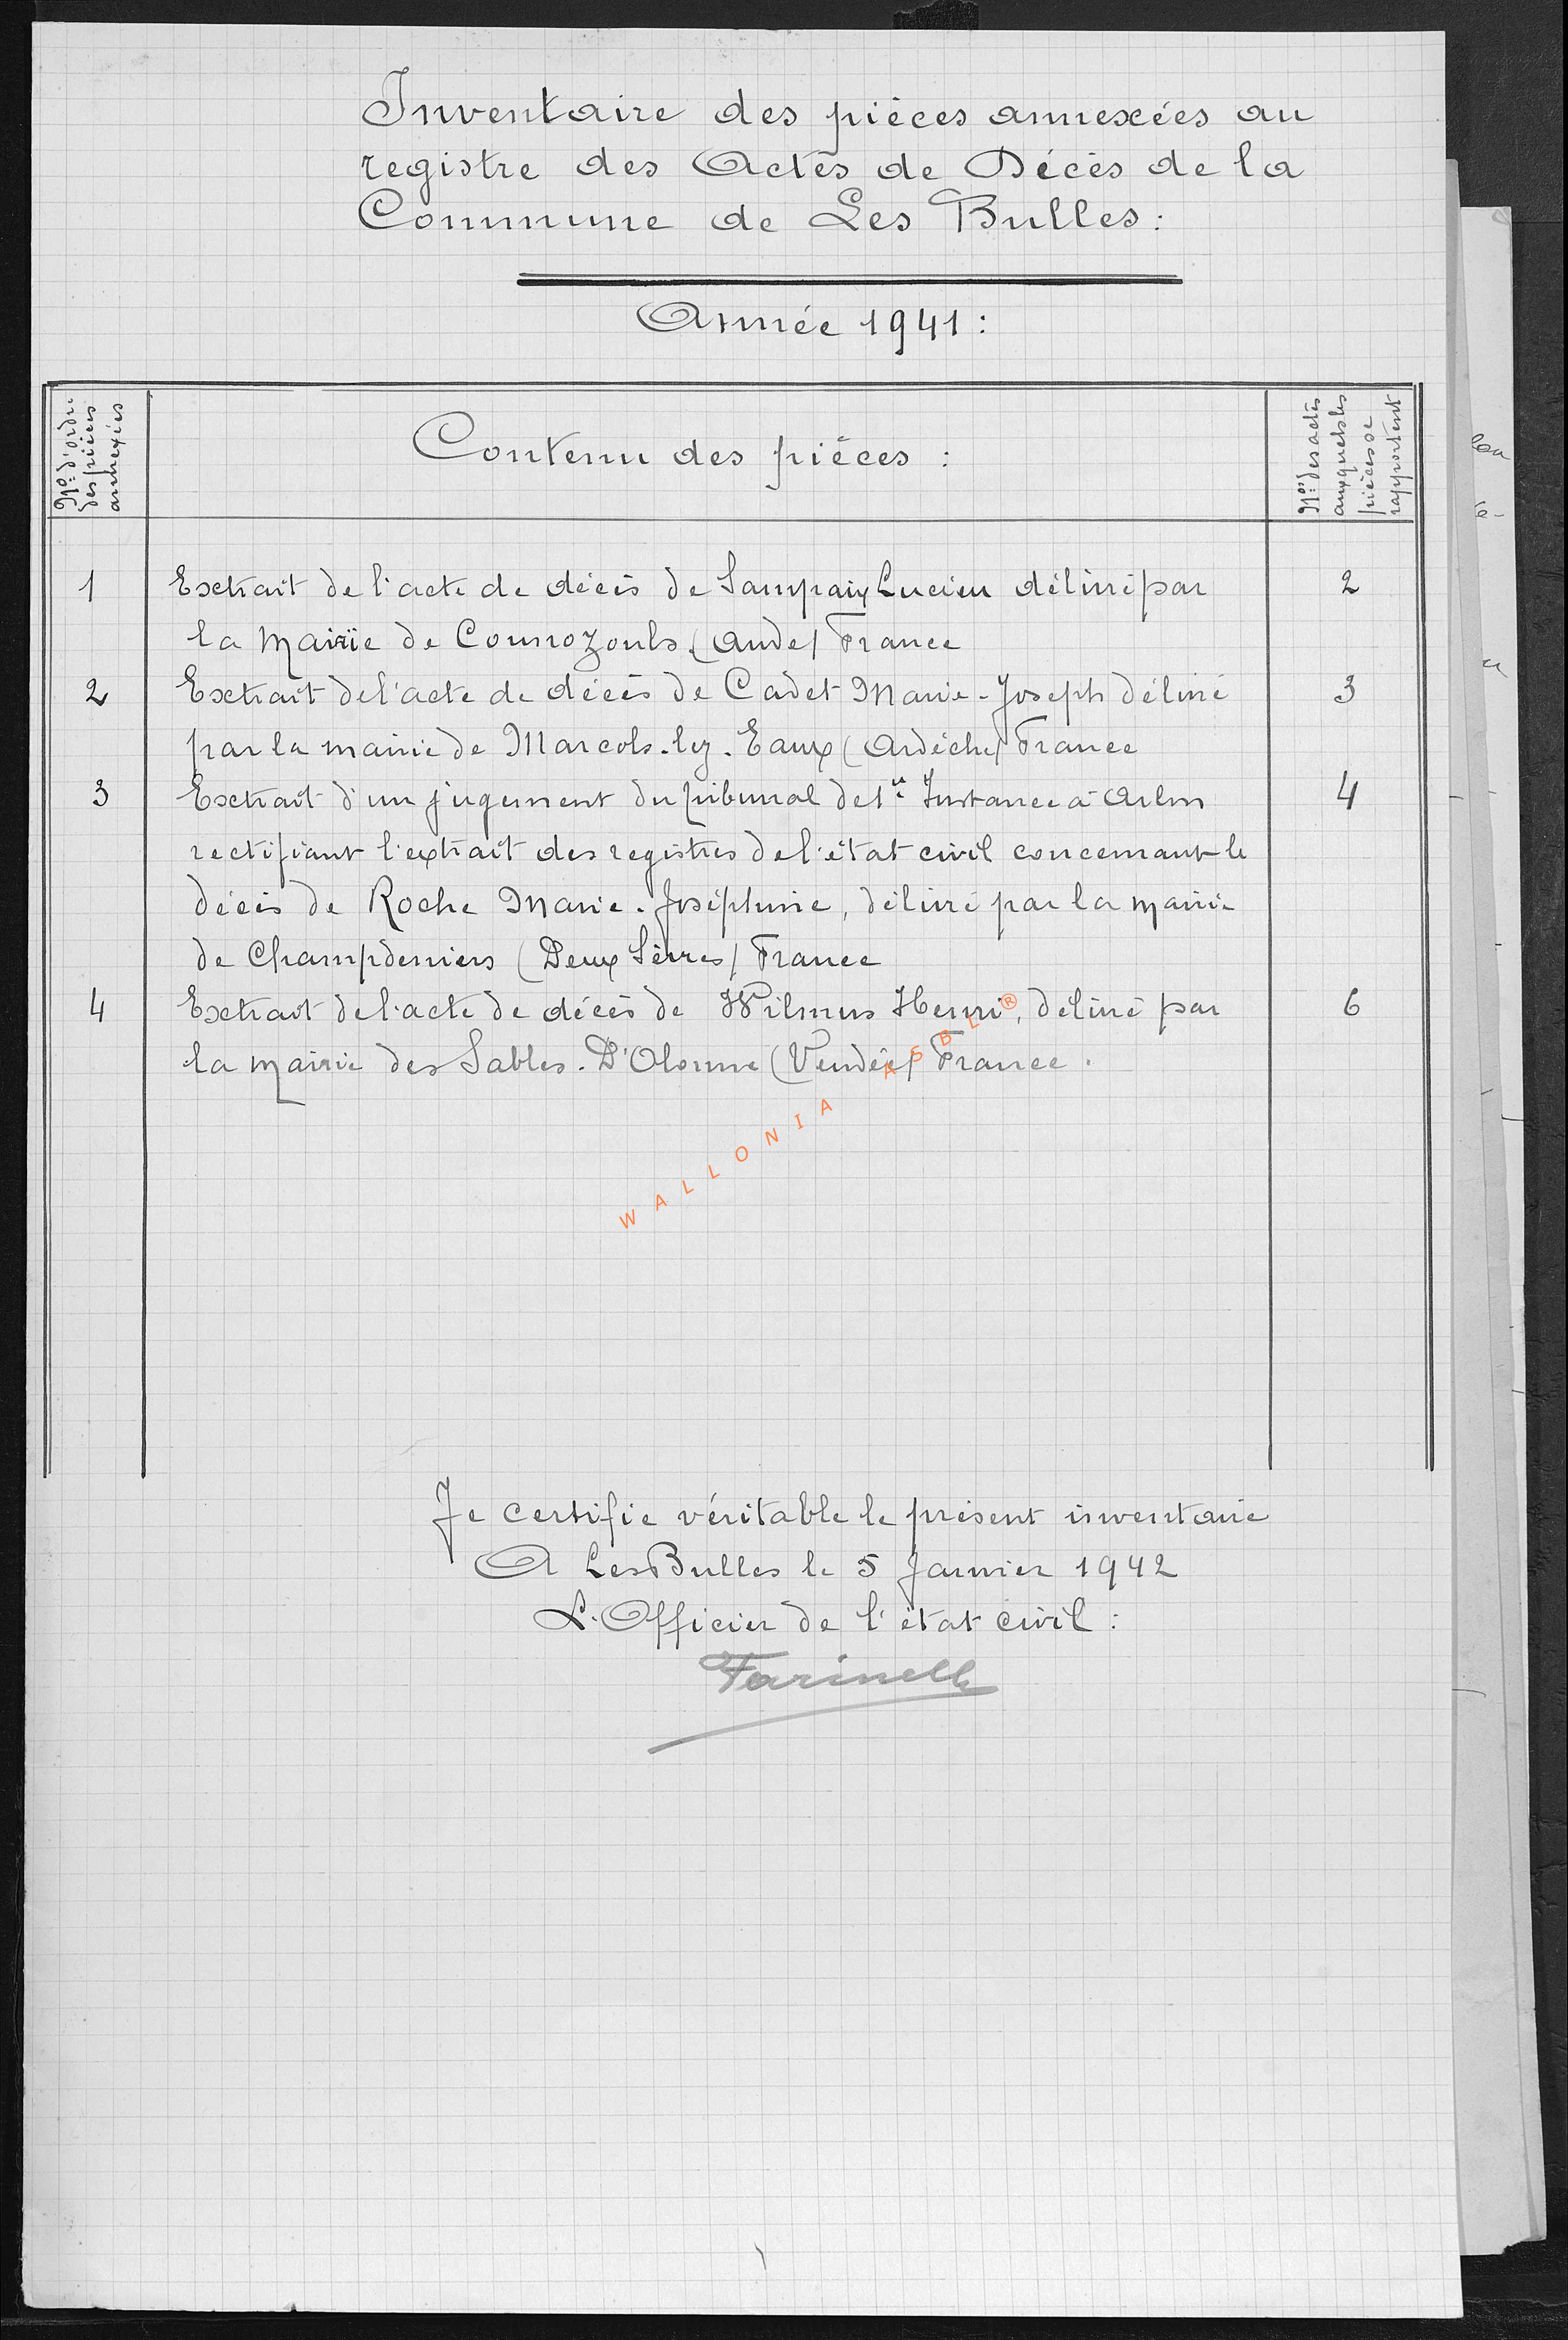 Inventaire des pièces annexées au
registre des Actes de Décès de la
Commune de Les Bulles :
Année 1941 :
Nº d'ordre
des pièces
annexées
Contenu des pièces :
Nos des actes
auxquels les
pièces se
rapportent
1 Extrait de l'acte de décès de Sampaix Lucien délivré par 2
la Mairie de Counozouls (Aude) France
2 Extrait de l'acte de décès de Cadet Marie-Joseph délivré 3
par la mairie de Marcols-lez-Eaux (Ardèche) France
3 Extrait d'un jugement du tribunal de 1re Instance à Arlon 4
rectifiant l'extrait des registres de l'état civil concernant le
décès de Roche Marie-Joséphine, délivré par la mairie
de Champdeniers (Deux Sèvres) France
4 Extrait de l'acte de décès de Wilmus Henri, délivré par 6
la mairie des Sables-D'Olonne (Vendée) France.
WALLONIA ASBL ®
Je certifie véritable le présent inventaire
A Les Bulles le 5 Janvier 1942
L'Officier de l'état civil :
Farinelle